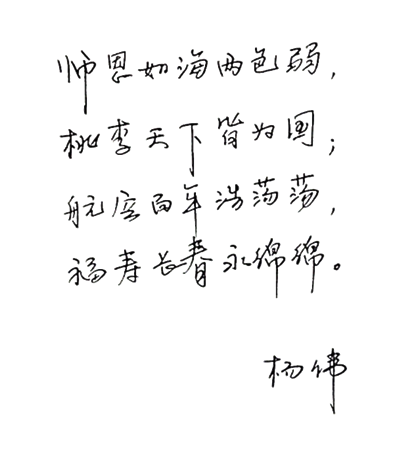 师恩如海两色弱，
桃李天下皆为国；
航空百年浩荡荡，
福寿长春永绵绵。
杨伟